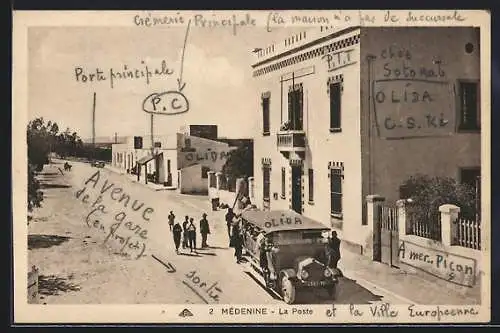 Crémerie Principale (la maison n'a pas de succursale
Porte principale
P.C
P.T.T
chez
Sotomab
OLIDA
C.S.K.
OLIDA
Avenue
de la gare
(en projet)
OLIDA
Amer. Picon
Sortie
2 MÉDENINE - La Poste et la Ville Européenne